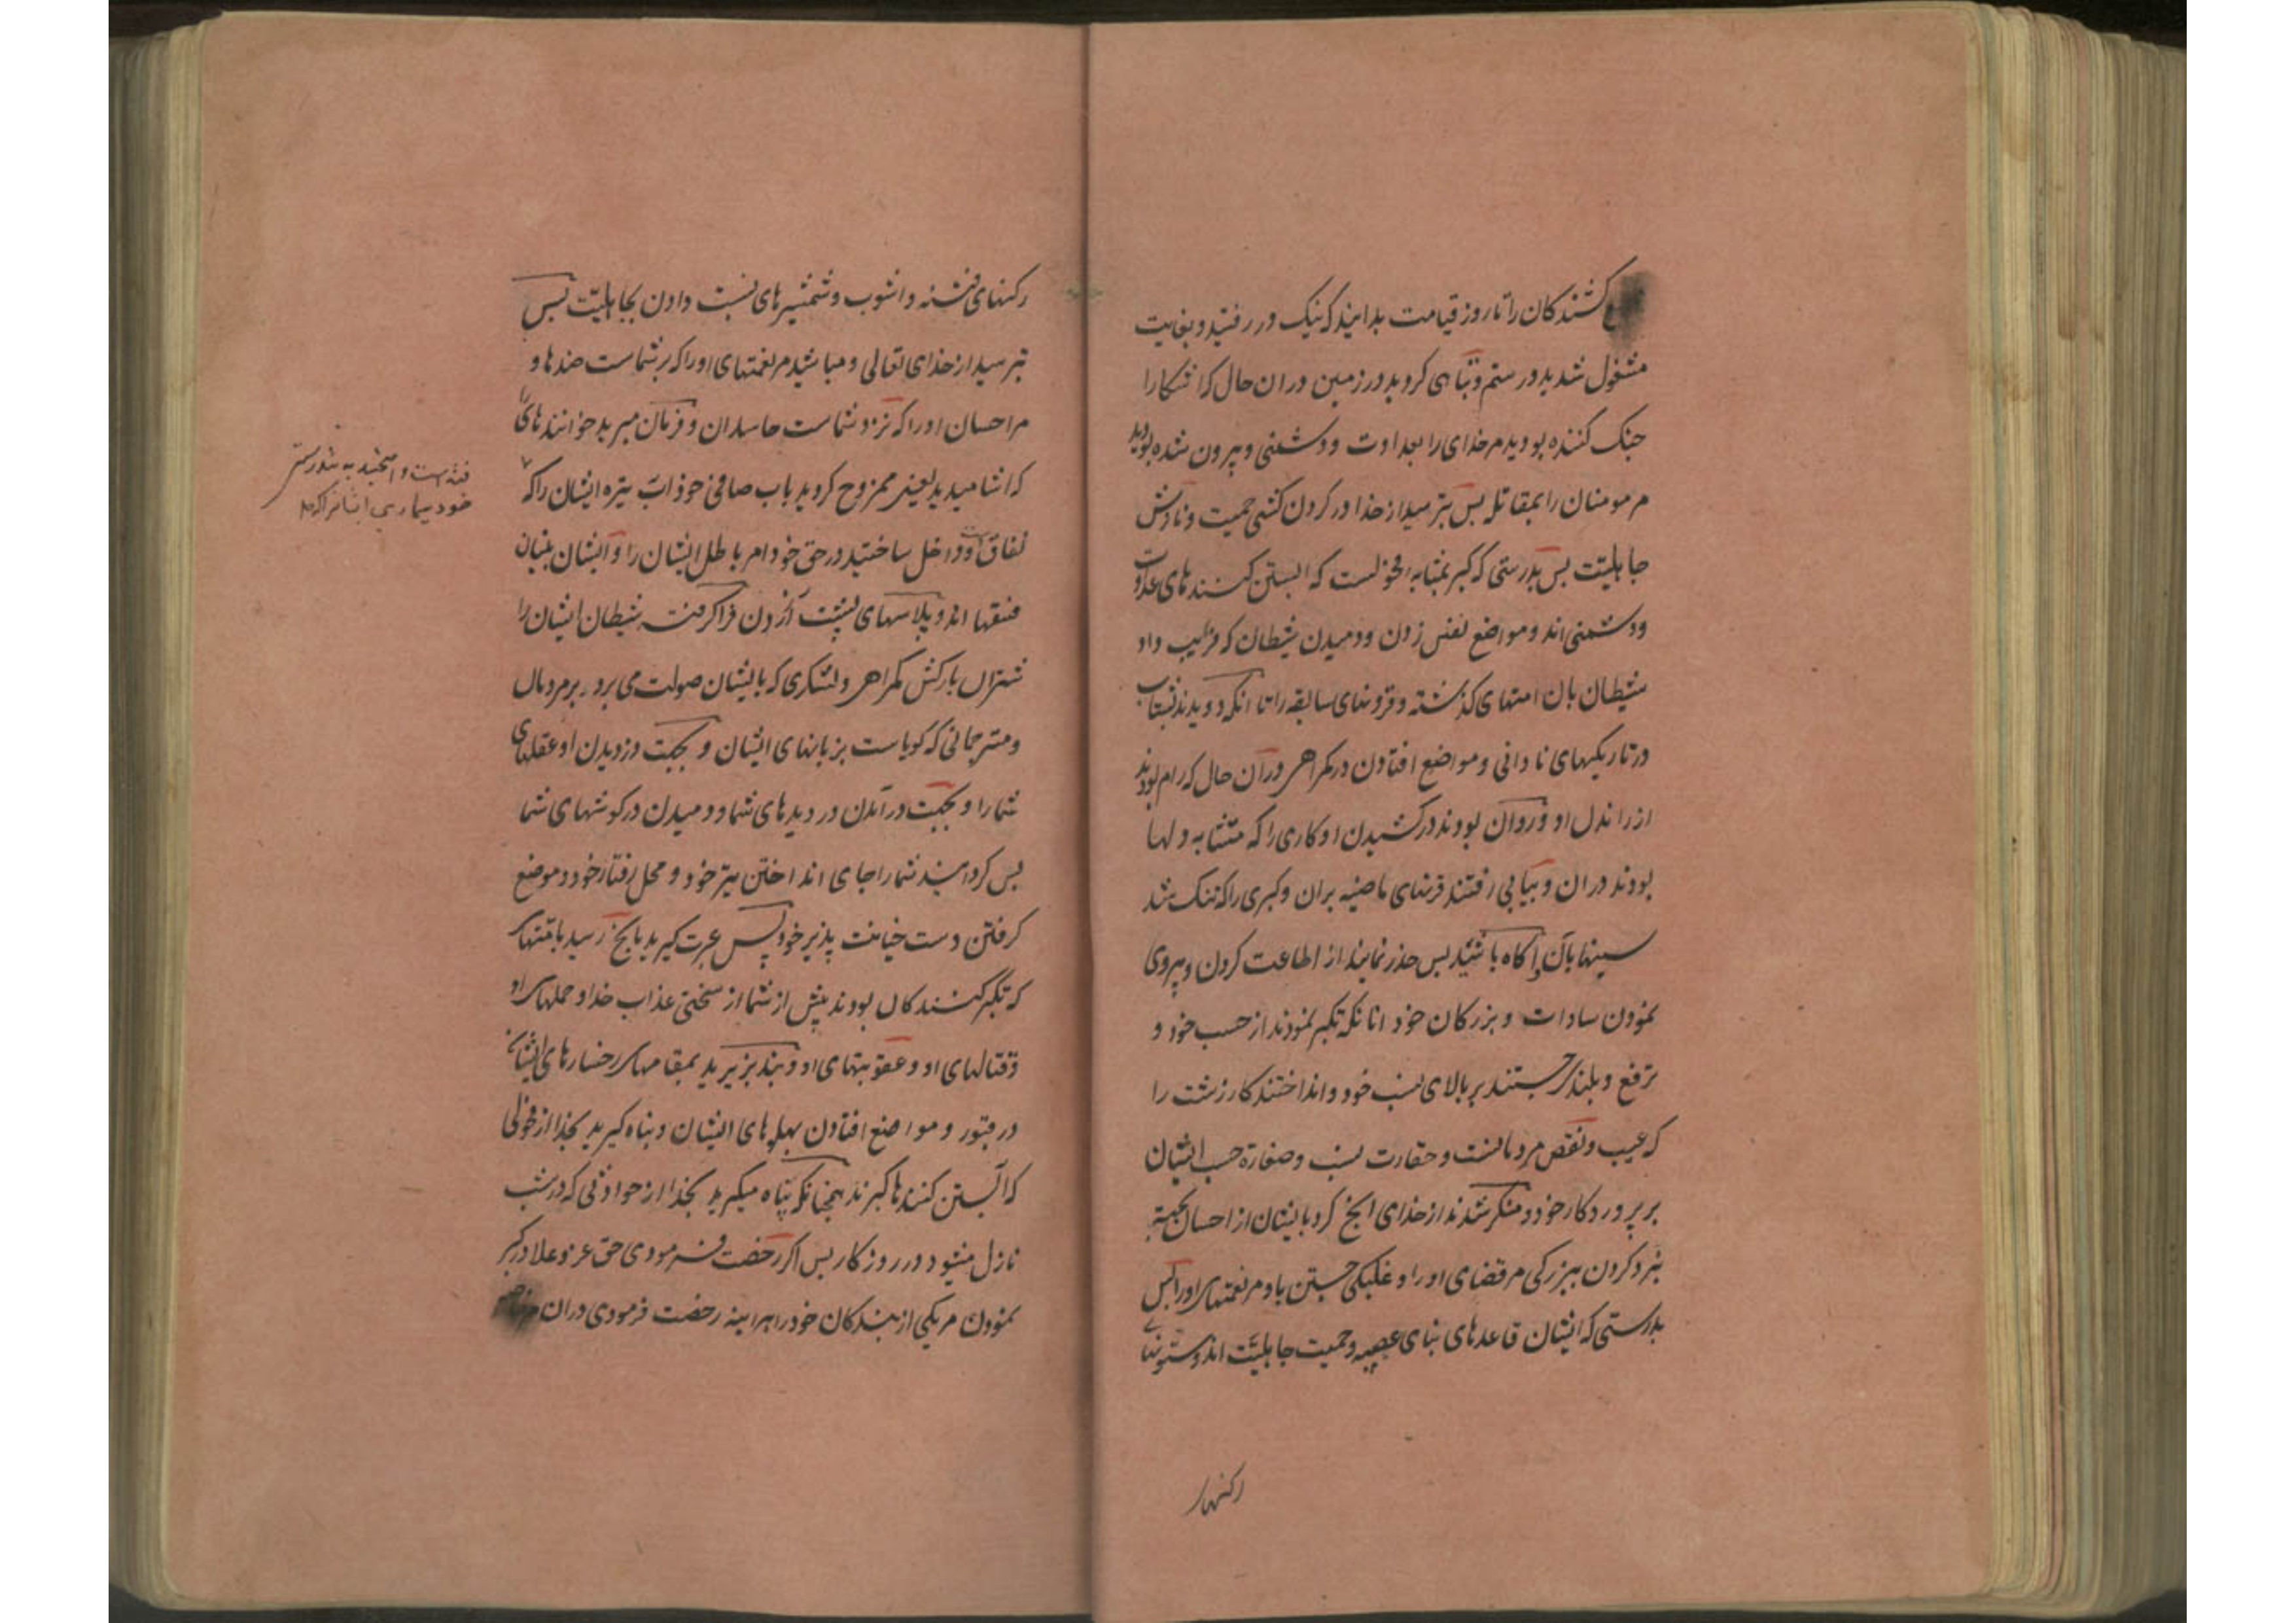 کشندکان را تا روز قیامت بدانید که نیک در رفتید و بغایت
مشغول شدید در ستم و تباهی کردید در زمین در ان حال که اشکارا
جنک کننده بودید مر خدای را بعداوت و دشمنی و بیرون شده بودید
مر مومنان را بمقاتله بس بترسید از خدا در کردن کشی حمیت و نازش
جاهلیت بس بدرستی که کبر بمثابه فحولست که ابستن کنندهای عداوت
و دشمنی اند و مواضع نفس زدن و دمیدن شیطان که فریب داد
شیطان بان امتهای کذشته و قرونهای سابقه را تا انکه دویدند بشتاب
در تاریکیهای نادانی و مواضع افتادن در کمراهی در آن حال که رام بودند
از راندن او فروان بودند در کشیدن او کاری را که متشابه دلها
بودند در ان و بیاپی رفتند قرنهای ماضیه بران و کبری را که تنک شد
سینها بان و اکاه باشید بس حذر نمایند از اطاعت کردن و پیروی
نمودن سادات و بزرکان خود انانکه تکبر نمودند از حسب خود و
ترفع و بلندی جستند بر بالای نسب خود و انداختند کار زشت را
که عیب و نقص مردمانست و حقارت نسب و صغارة حسب ایشان
بر پروردکار خود و منکر شدند از خدای انچ کرد بایشان از احسان بجهة
نبرد کردن ببزرکی مر قضای او را و غلبکی جستن با و مر نعمتهای او را بس
بدرستی که ایشان قاعدهای بنای عصبیه و حمیت جاهلیت اند و ستونهای
رکنهای
رکنهای فتنه و اشوب و شمشیرهای نسبت دادن بجاهلیت بس
بترسید از خدای تعالی و مباشید مر نعمتهای او را که بر شماست ضدها و
مر احسان او را که نزد شماست حاسدان و فرمان مبرید خوانندهای را
که اشامیدید یعنی ممزوج کردید باب صافی خود اب تیره ایشان را که
نفاق است و داخل ساختید در حق خود امر باطل ایشان را و ایشان بنیان
فسقها اند و پلاسهای پشت آزردن فرا کرفته شیطان ایشان را
شتران بارکش کمراهی و لشکری که بایشان صولت می برد بر مردمان
و مترجمانی که کویاست بزبانهای ایشان و بجهت دزدیدن او عقلهای
شما را و بجهت در آمدن در دیدهای شما و دمیدن در کوشهای شما
بس کردانید شما را جای انداختن تیر خود و محل رفتار خود و موضع
کرفتن دست خیانت پذیر خود پس عبرت کیرید بانچ رسید بامتهای
که تکبر کنندکان بودند پیش از شما از سختی عذاب خدا و حملهای او
وقتالهای او و عقوبتهای او و پند بزیرید بمقامهای رخسارهای ایشان
در قبور و مواضع افتادن پهلوهای ایشان و پناه کیرید بخدا از فحولی
که آبستن کنندهای کبرند همچنانکه پناه میکیرید بخدا از حوادثی که در شب
نازل میشود و در روزکار بس اکر رخصت فرمودی حق عز و علا در کبر
نمودن مر یکی از بندکان خود را هر اینه رخصت فرمودی در ان
فتنه است و امیختید به تندرستی
خود بیماری ایشانرا که